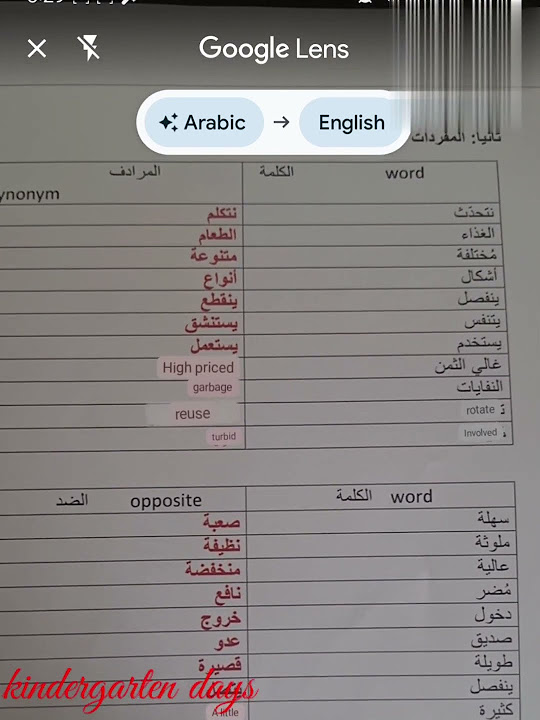 Google Lens
Arabic → English
ثانيا: المفردات
word الكلمة المرادف
ynonym
نتحدّث نتكلم
الغذاء الطعام
مُختلفة متنوعة
أشكال أنواع
ينفصل ينقطع
يتنفس يستنشق
يستخدم يستعمل
غالي الثمن High priced
النفايات garbage
rotate reuse
Involved turbid
word الكلمة opposite الضد
سهلة صعبة
ملوثة نظيفة
عالية منخفضة
مُضر نافع
دخول خروج
صديق عدو
طويلة قصيرة
ينفصل
كثيرة A little
kindergarten days